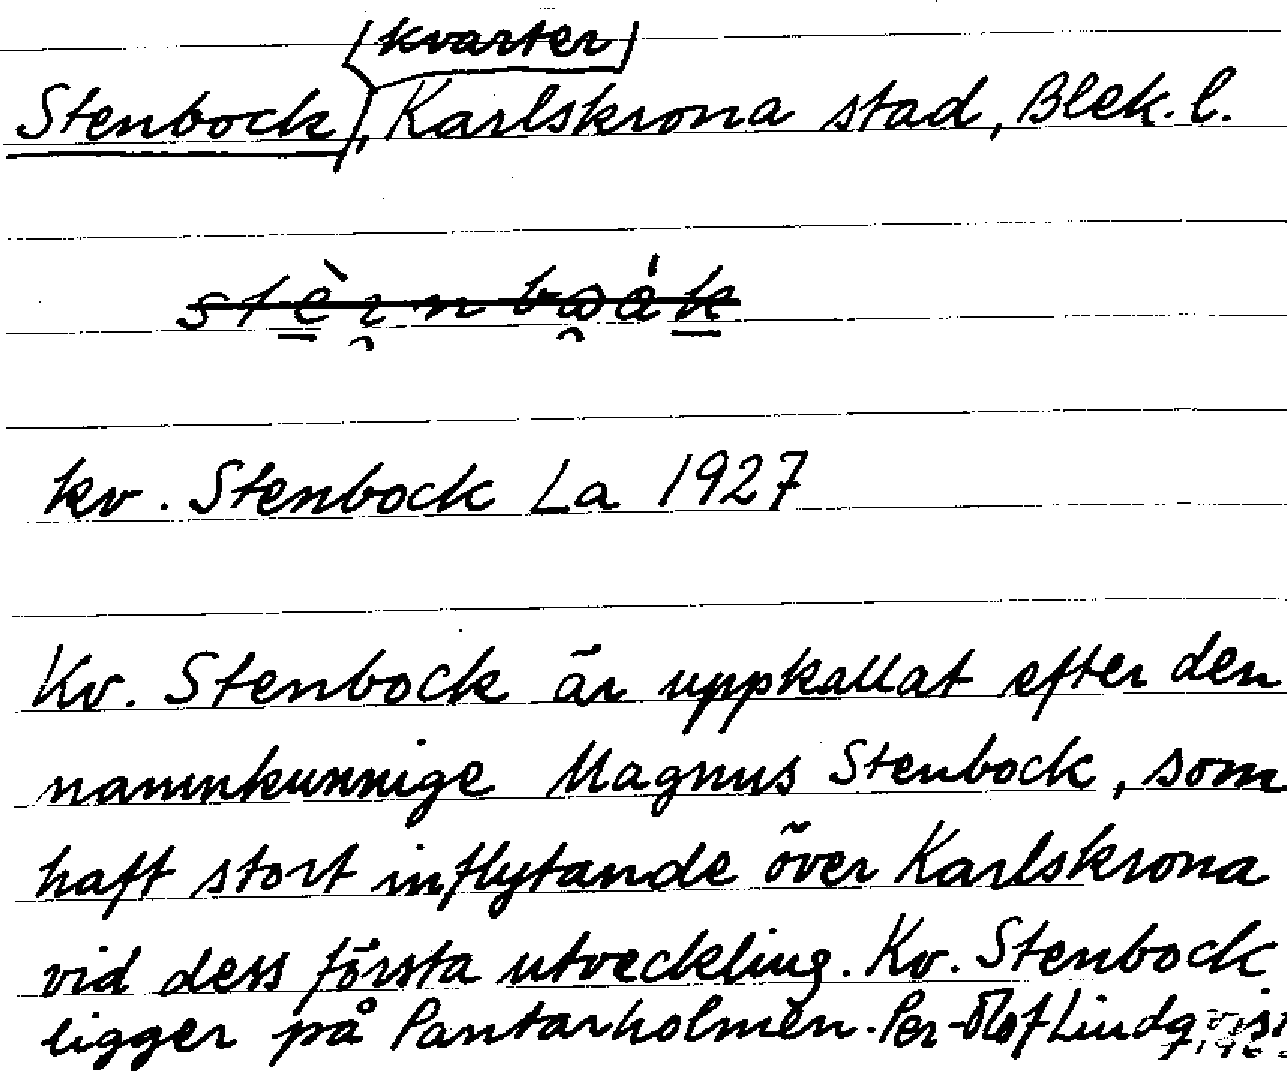 (kvarter)
Stenbock, Karlskrona stad, Blek. l.
kv. Stenbock La 1927
Kv. Stenbock är uppkallat efter den
namnkunnige Magnus Stenbock, som
haft stort inflytande över Karlskrona
vid dess första utveckling. Kv. Stenbock
ligger på Pantarholmen. Per-Olof Lindqvist